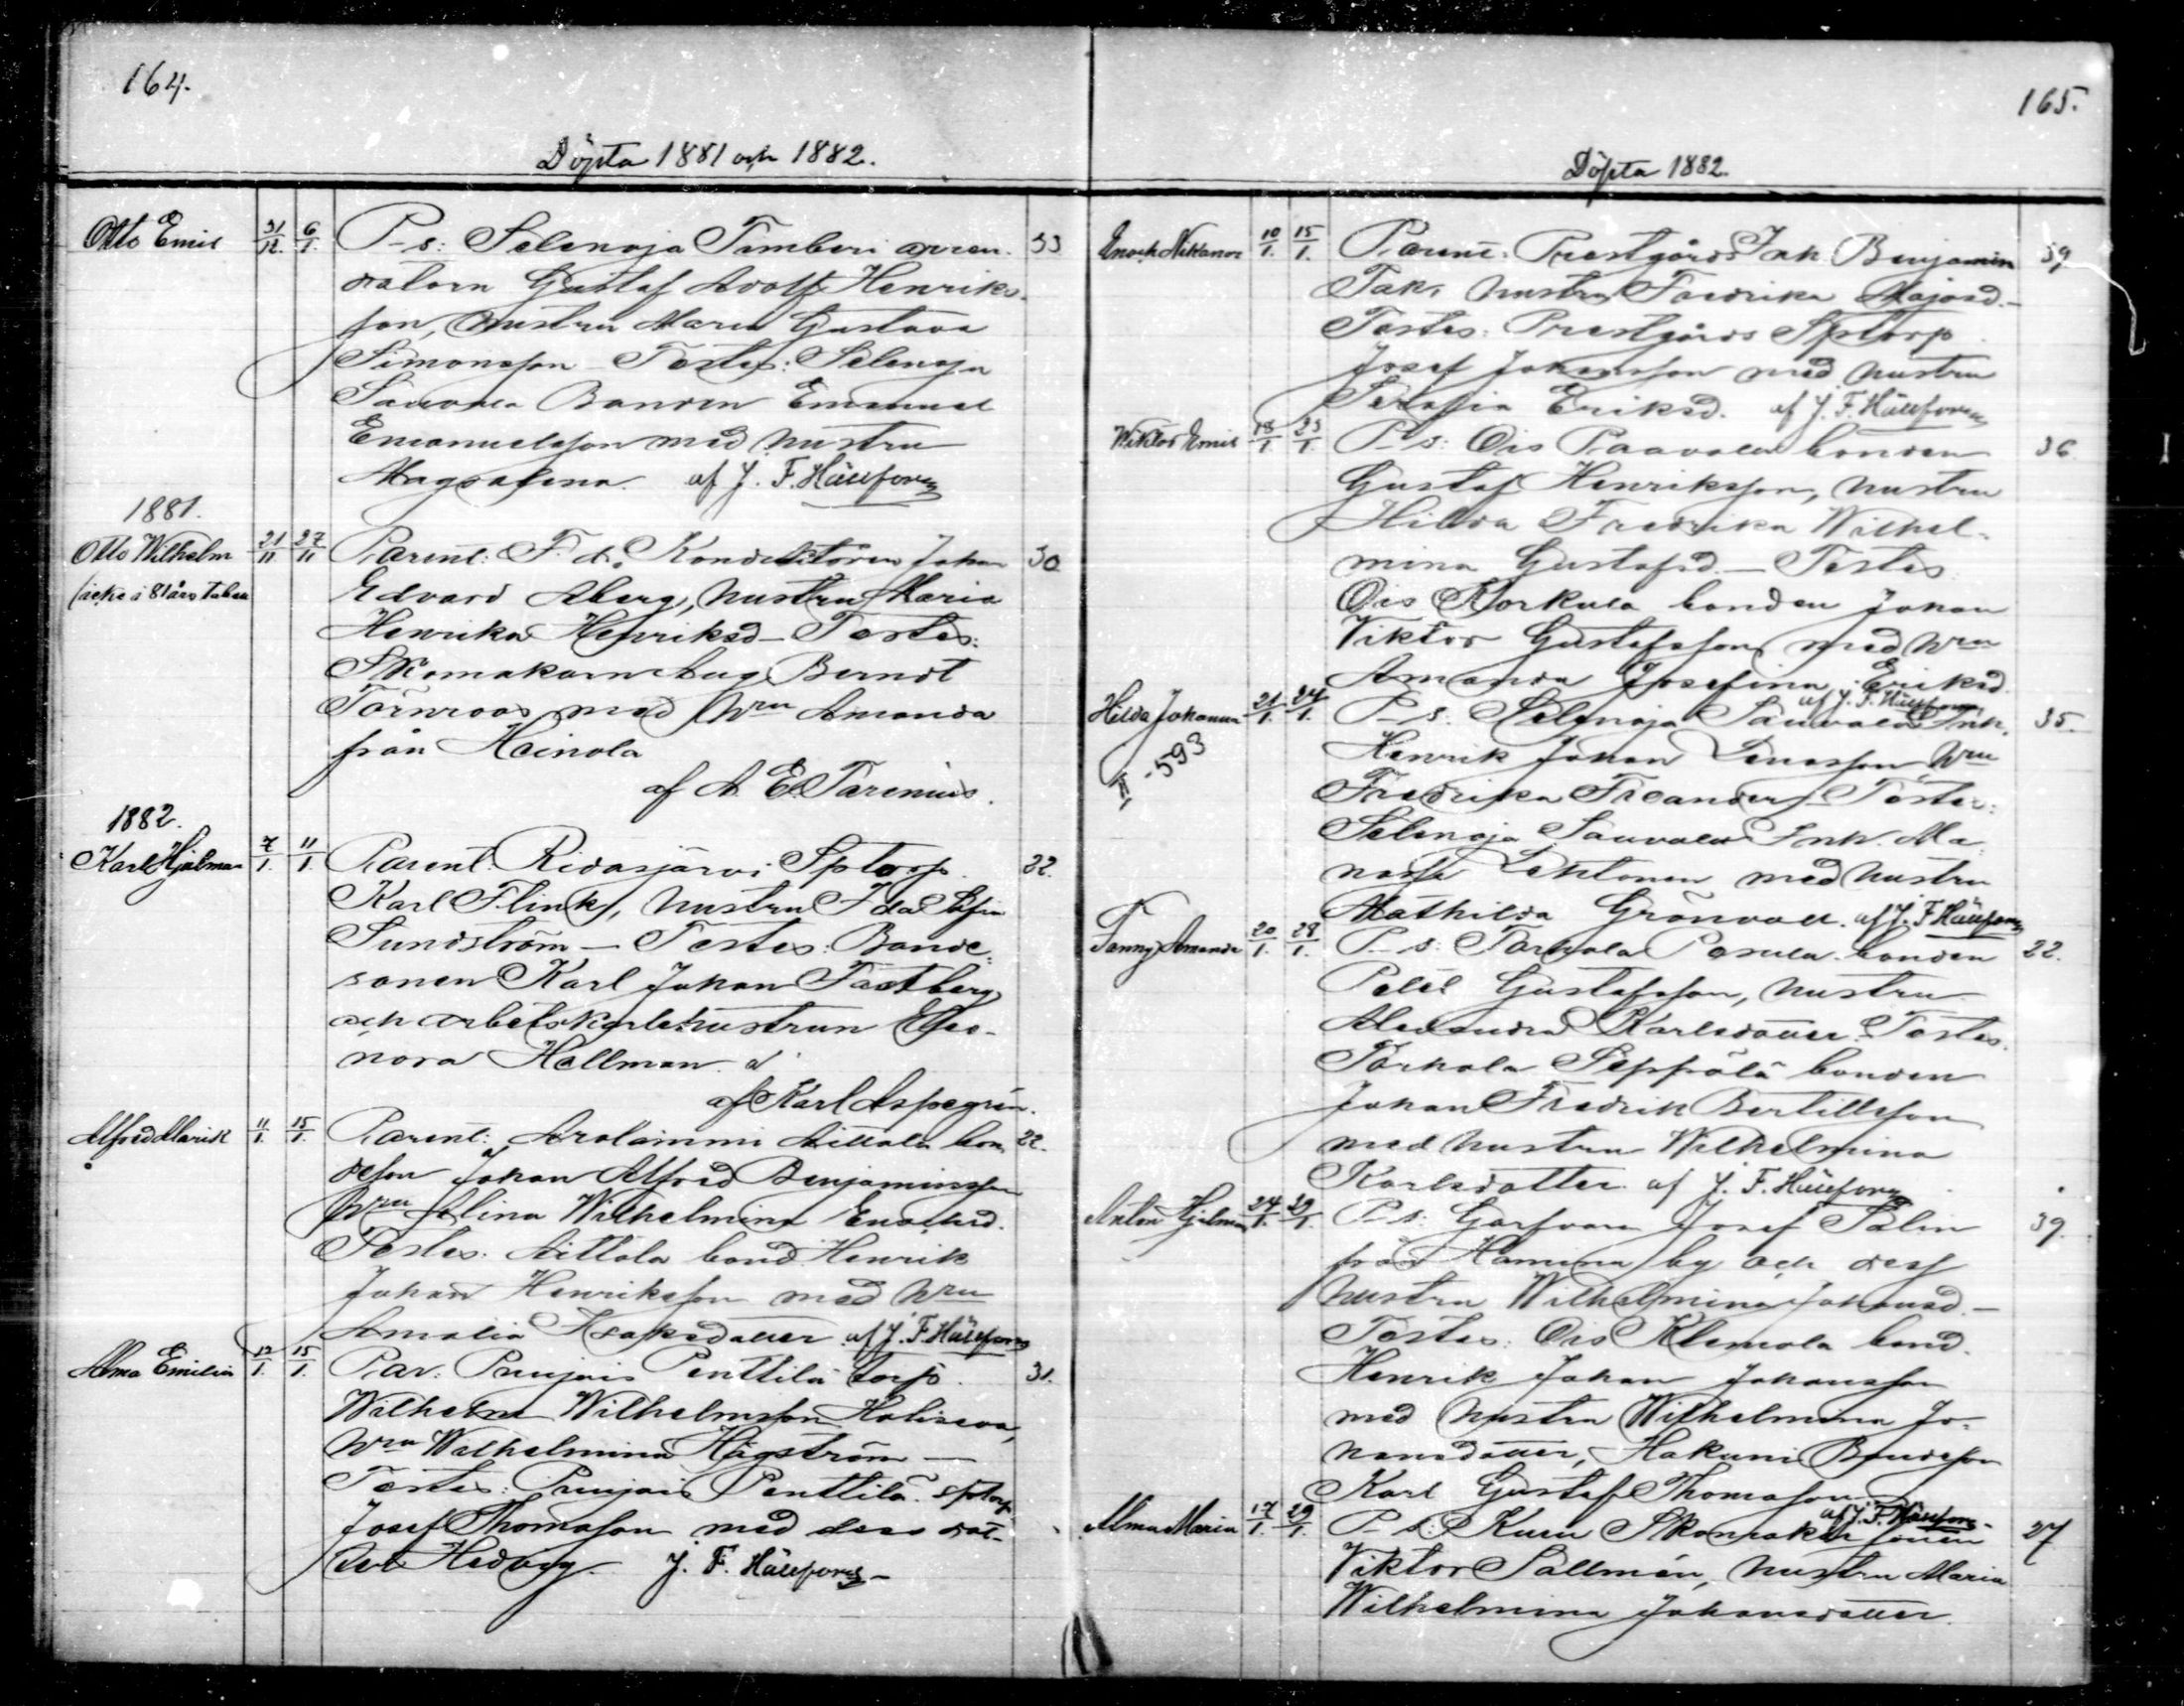 164.
Döpta 1881 och 1882.
Otto Emil 31/12. 6/1. P-s: Selenoja Timberi arren- 33
datorn Gustaf Adolf Henriks-
son, hustru Maria Gustava
Simonsson – Testes: Selenoja
Sauvala Bonden Emanuel
Emanuelsson med hustru
Magdalena. af J. F. Hällfors
1881.
Otto Wilhelm 21/11 27/11 Parent: F. d. Konduktören Johan 30
(icke i 81 års tabell
Edvard Åberg, hustru Maria
Henrika Henriksd – Testes:
Skomakarn Aug. Berndt
Törnroos med hru Amanda
från Heinola
af A. E. Tarenius.
1882.
Karl Hjalmar 7/1. 11/1. Parent. Ridasjärvi Sptorp. 22.
Karl Flink, hustru Ida Sofia
Sundström – Testes: Bonde-
sonen Karl Johan Fastberg
och arbetskarlshustrun Eleo-
nora Hellman.
af Karl Aspegrén.
Alfred Marik 11/1. 15/1. Parent: Arolammi Aittola bon- 22.
deson Johan Alfred Benjaminsson
hru Alina Wilhelmina Enochsd.
Testes: Aittola bond. Henrik
Johan Henriksson med hru
Amalia Isaksdotter af J. F. Hällfors
Alma Emilia 12/1. 15/1. Par. Punjois Penttilä torp. 31.
Wilhelm Wilhelmsson
hru Wilhelmina Hägström –
Testes: Punjois Penttilä. sptorp.
Josef Thomasson med dess dot-
ter Hedvig. J. F. Hällfors –
165.
Döpta 1882.
Enock Nikanor 10/1. 15/1. Parent: Prestgårds Inh. Benjamin 39
Tak, hustru Fredrika Majasd. –
Testes: Prestgårds Sptorp.
Josef Johansson med hustru
Serafia Eriksd. af J. F. Hällfors
Wiktor Emil 18/1. 23/1. P-s: Ois Paavola bonden 36
Gustaf Henriksson, hustru
Hilda Fredrika Wilhel-
mina Gustafsd. – Testes
Ois Korkula bonden Johan
Viktor Gustafsson med hru
Amanda Josefina Eriksd.
af J. F. Hällfors
Hilda Johanna 21/1. 24/1. P-s. Selenoja Sauvala Inh. 35.
II – 593
Henrik Johan hru
Fredrika – Testes:
Selenoja Sauvala Inh. Ma-
nasse Lehtonen med hustru
Mathilda Grönvall. af J. F. Hällfors
Fanny Amanda 20/1. 28/1. P-s: Torhola bonden 22.
Gustafsson, hustru
Alexandra Karlsdotter. Testes.
Torhola Seppälä bonden
Johan Fredrik Bertillsson
med hustru Wilhelmina
Karlsdotter. af J. F. Hällfors
Anton Hjalmar 24/1. 29/1. P-s: Garfvarn Josef Salin 39.
från Hamina by och dess
hustru Wilhelmina Johansd. –
Testes: Ois Klemola bond.
Henrik Johan Johansson
med hustru Wilhelmina Jo-
hansdotter, Hakuni Bondeson
Karl Gustaf Thomasson.
af J. F. Hällfors
Alma Maria 17/1. 29/1. P-s: Kuru Skomakar sonen 27
Viktor Sallmén, hustru Maria
Wilhelmina Johansdotter.